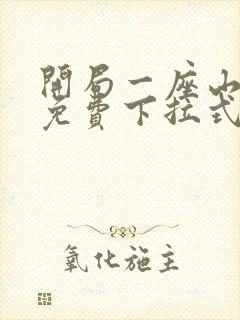 開局一座山
免費下拉式
氧化施主